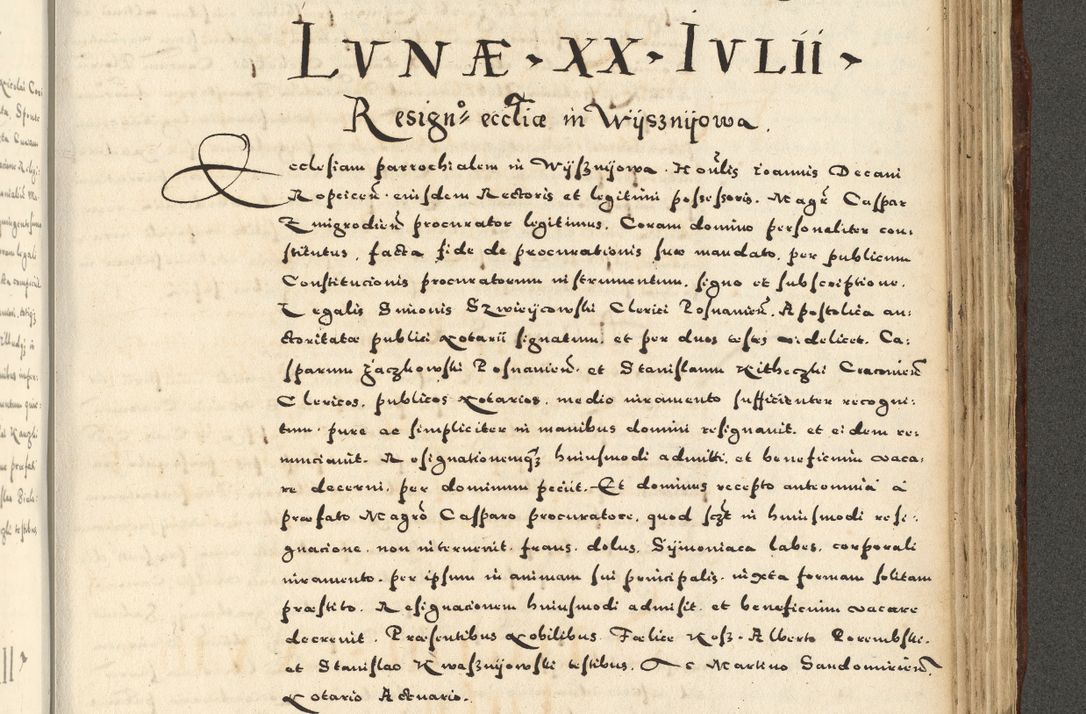 LVNÆ · XX · IVLII ·
Resign: eccl̃iæ in Wÿsznÿowa.
Ecclesiam parrochialem in Wÿsznÿowa. Hon̄lis Ioannis Decani
Ropcicen̄. eiusdem Rectoris et legitimi possessoris. Magr̄ Caspar
Zmigrodien̄ procurator legitimus. Coram domino personaliter con:
stitutus, facta fide de procurationis suæ mandato, per publicum
Constitucionis procuratorum instrumentum, signo et subscriptione,
Legalis Simonis Szwieÿcowski Clerici Posnanien̄. Apostolica au:
ctoritatæ publici Notarii signatum, et per duos testes videlicet. Ca:
sparum Żaczkowski Posnanien̄. et Stanislaum Kitheczki Cracouien̄
Clericos, publicos Notarios, medio iuramento sufficienter recogni:
tum. pure ac simpliciter in manibus domini resignauit. et eidem re:
nunciauit. Resignationemqȝ huiusmodi admitti, et beneficium vaca:
re decerni, per dominum peciit. Et dominus recepto anteomnia à
præfato Magrō Casparo procuratore, quod sczt̄ in huiusmodi resi:
gnacione. non interuenit. fraus. dolus, Sÿmoniaca labes, corporali
iuramento. per ipsum in animam sui principalis. iuxta formam solitam
præstito. Resignacionem huiusmodi admisit. et beneficium vacare
decreuit. Præsentibus Nobilibus. Fælice Kosz. Alberto Porembski.
et Stanislao Kwasznÿowski testibus. Ac Martino Sandomirien̄.
Notario Actuario.